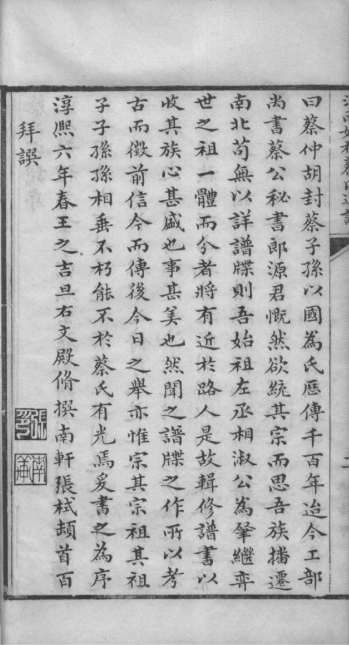 曰蔡仲胡封蔡子孫以國為氏歷傳千百年迨今工部
尚書蔡公秘書郎源君慨然欲統其宗而思吾族播遷
南北苟無以詳譜牒則吾始祖左丞相淑公為肇繼弈
世之祖一體而分者將有近於路人是故輯修譜書以
收其族心甚盛也事甚美也然聞之譜牒之作所以考
古而徵前信今而傳後今日之舉亦惟宗其宗祖其祖
子子孫孫相垂不朽能不於蔡氏有光焉爰書之為序
淳熙六年春王之吉旦右文殿脩撰南軒張栻頓首百
拜譔